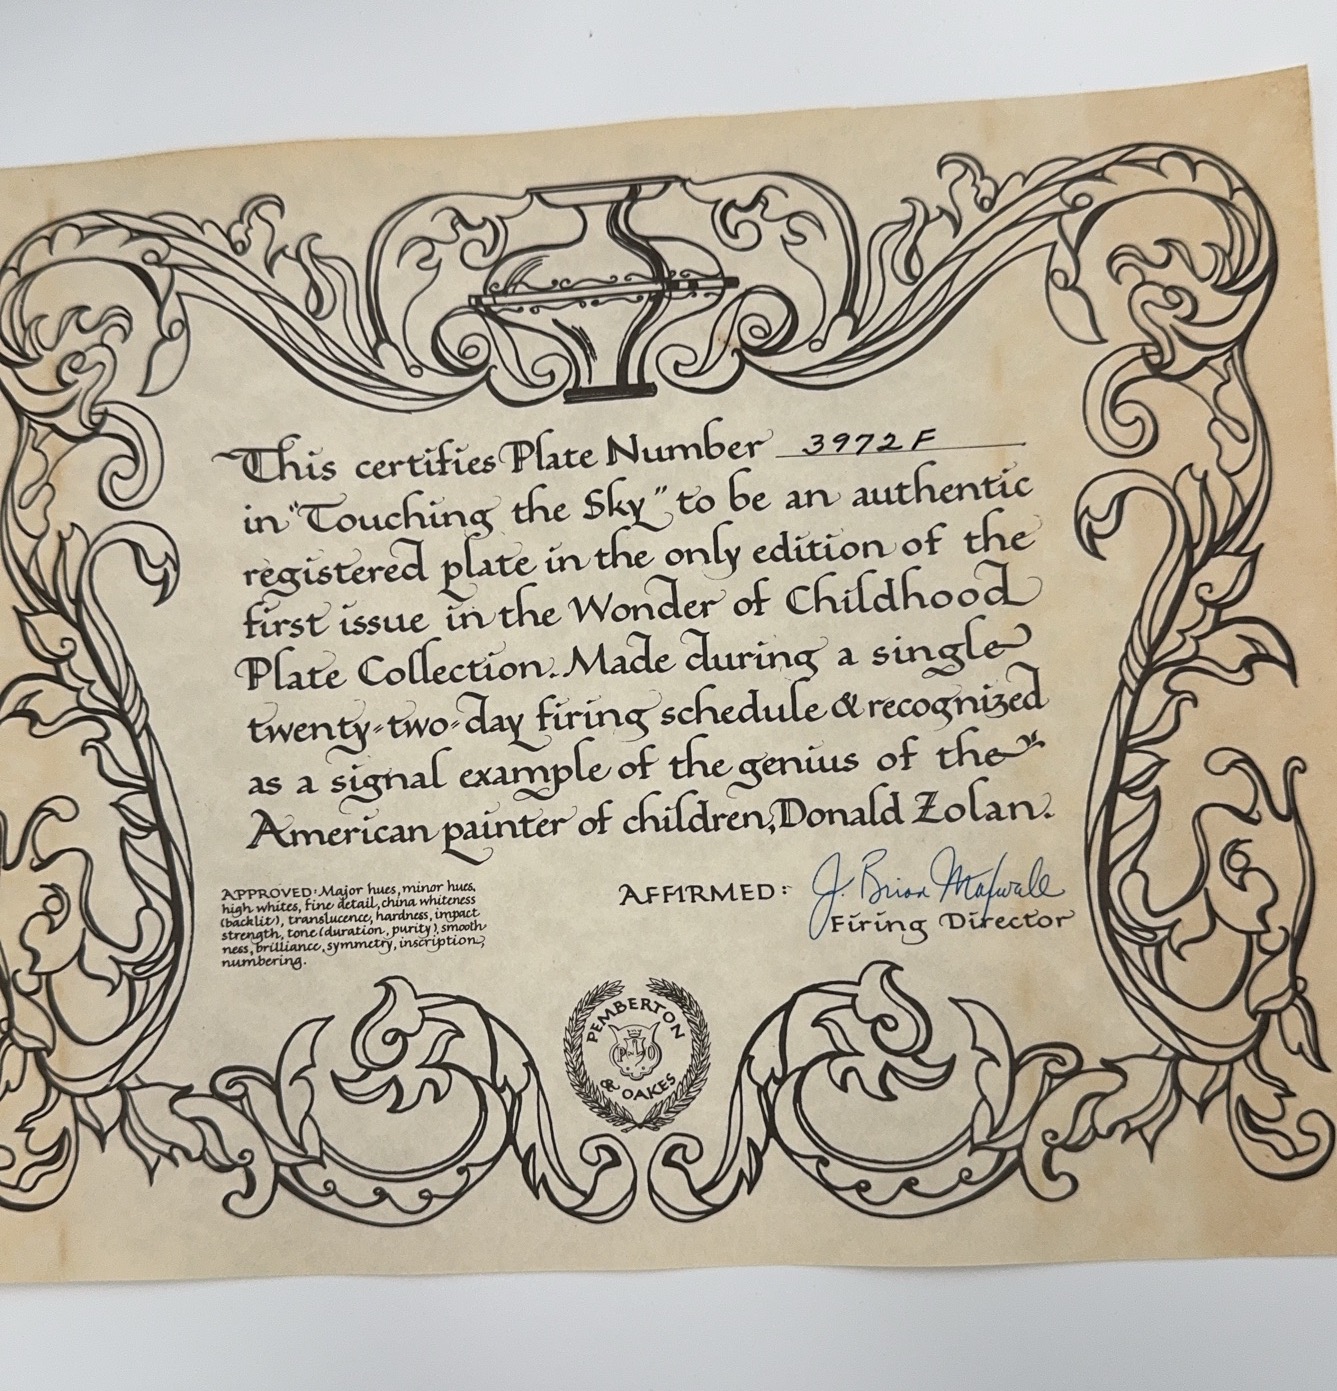 This certifies Plate Number 3972F
in "Touching the Sky" to be an authentic
registered plate in the only edition of the
first issue in the Wonder of Childhood
Plate Collection. Made during a single
twenty-two-day firing schedule & recognized
as a signal example of the genius of the
American painter of children, Donald Zolan.
APPROVED: Major hues, minor hues,
high whites, fine detail, china whiteness
(backlit), translucence, hardness, impact
strength, tone (duration, purity), smooth
ness, brilliance, symmetry, inscription,
numbering.
AFFIRMED: J. Brian
Firing Director
PEMBERTON
& OAKES